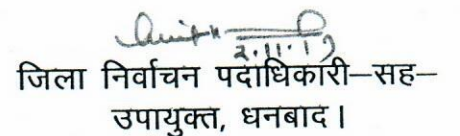 2.11.19
जिला निर्वाचन पदाधिकारी–सह–
उपायुक्त, धनबाद।